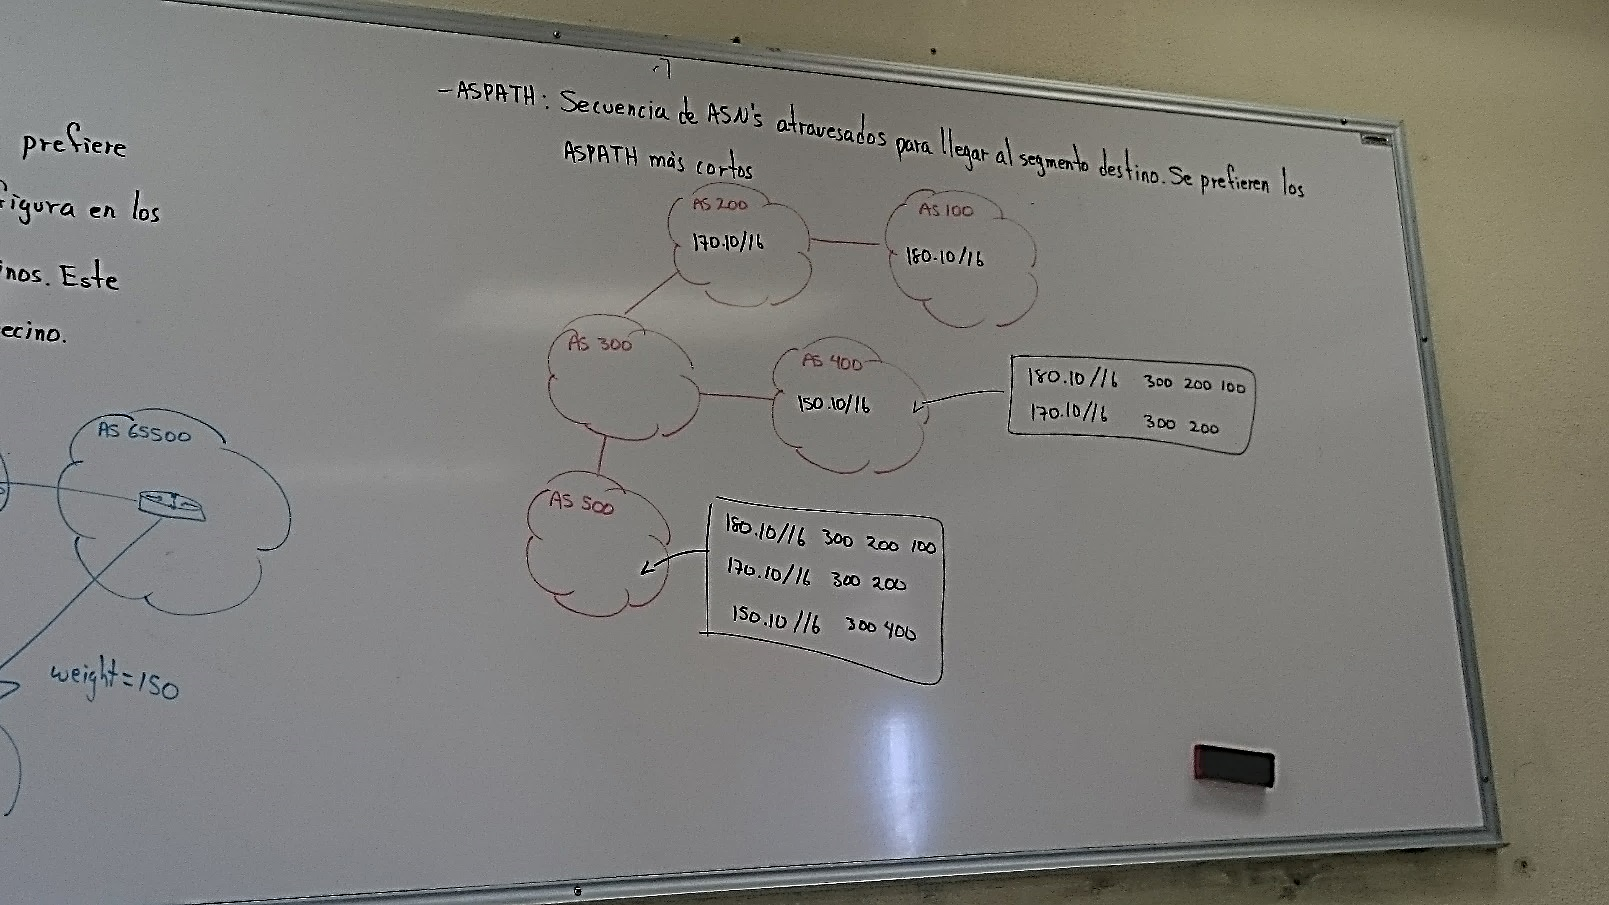 prefiere
figura en los
inos. Este
ecino.
AS 65500
weight=150
-ASPATH: Secuencia de ASN's atravesados para llegar al segmento destino. Se prefieren los
ASPATH más cortos
AS 200
170.10/16
AS 100
180.10/16
AS 300
AS 400
150.10/16
180.10/16 300 200 100
170.10/16 300 200
AS 500
180.10/16 300 200 100
170.10/16 300 200
150.10/16 300 400